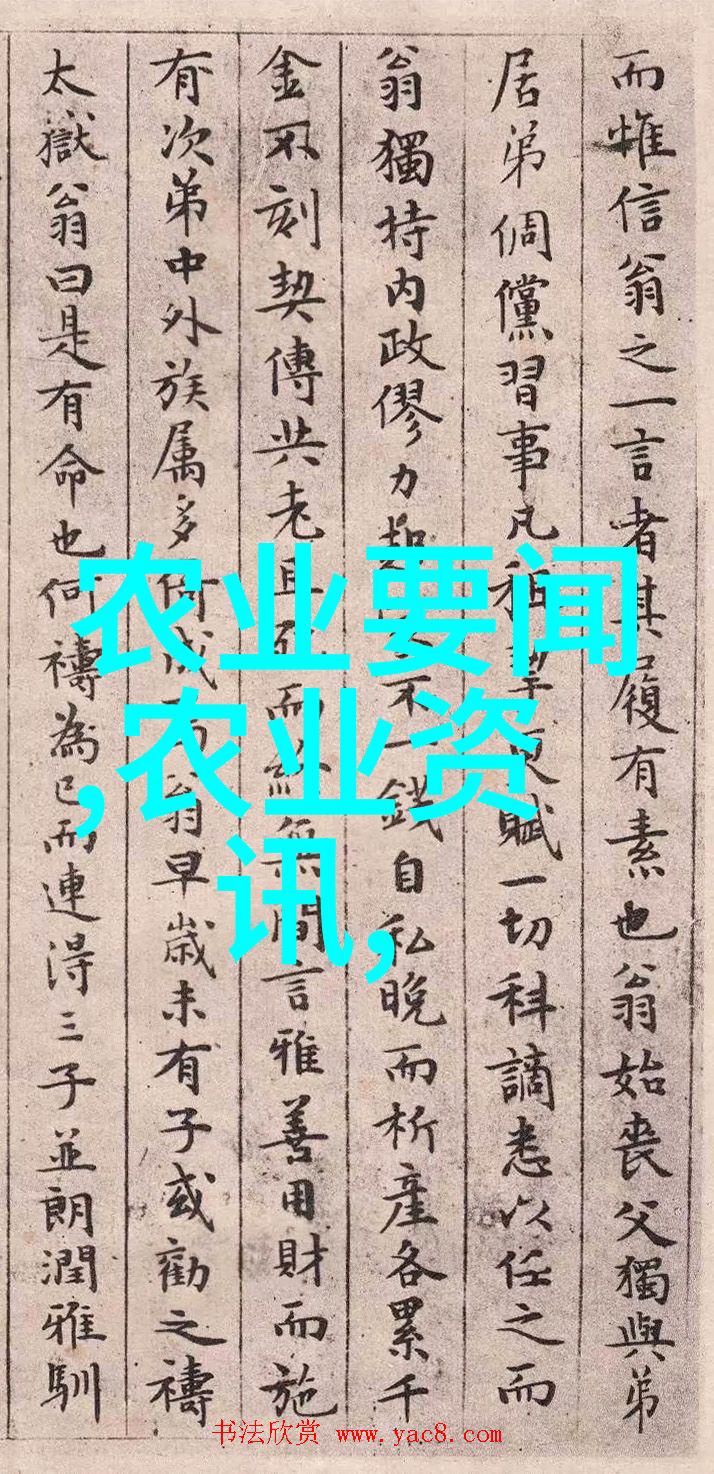 而惟信翁之一言者其履有素也翁始喪父獨與弟
居弟倜儻習事凡租挈更賦一切科謫悉以任之而
翁獨持内政僇力不一錢自私晚而析產各累千
金不刻契傳共老且死而終無間言雅善用財而施
有次弟中外族属多翁早歲未有子或勸之禱
太嶽翁曰是有命也何禱為已而連得三子並朗潤雅馴
农业要闻
,农业资
讯,
书法欣赏 www.yac8.com